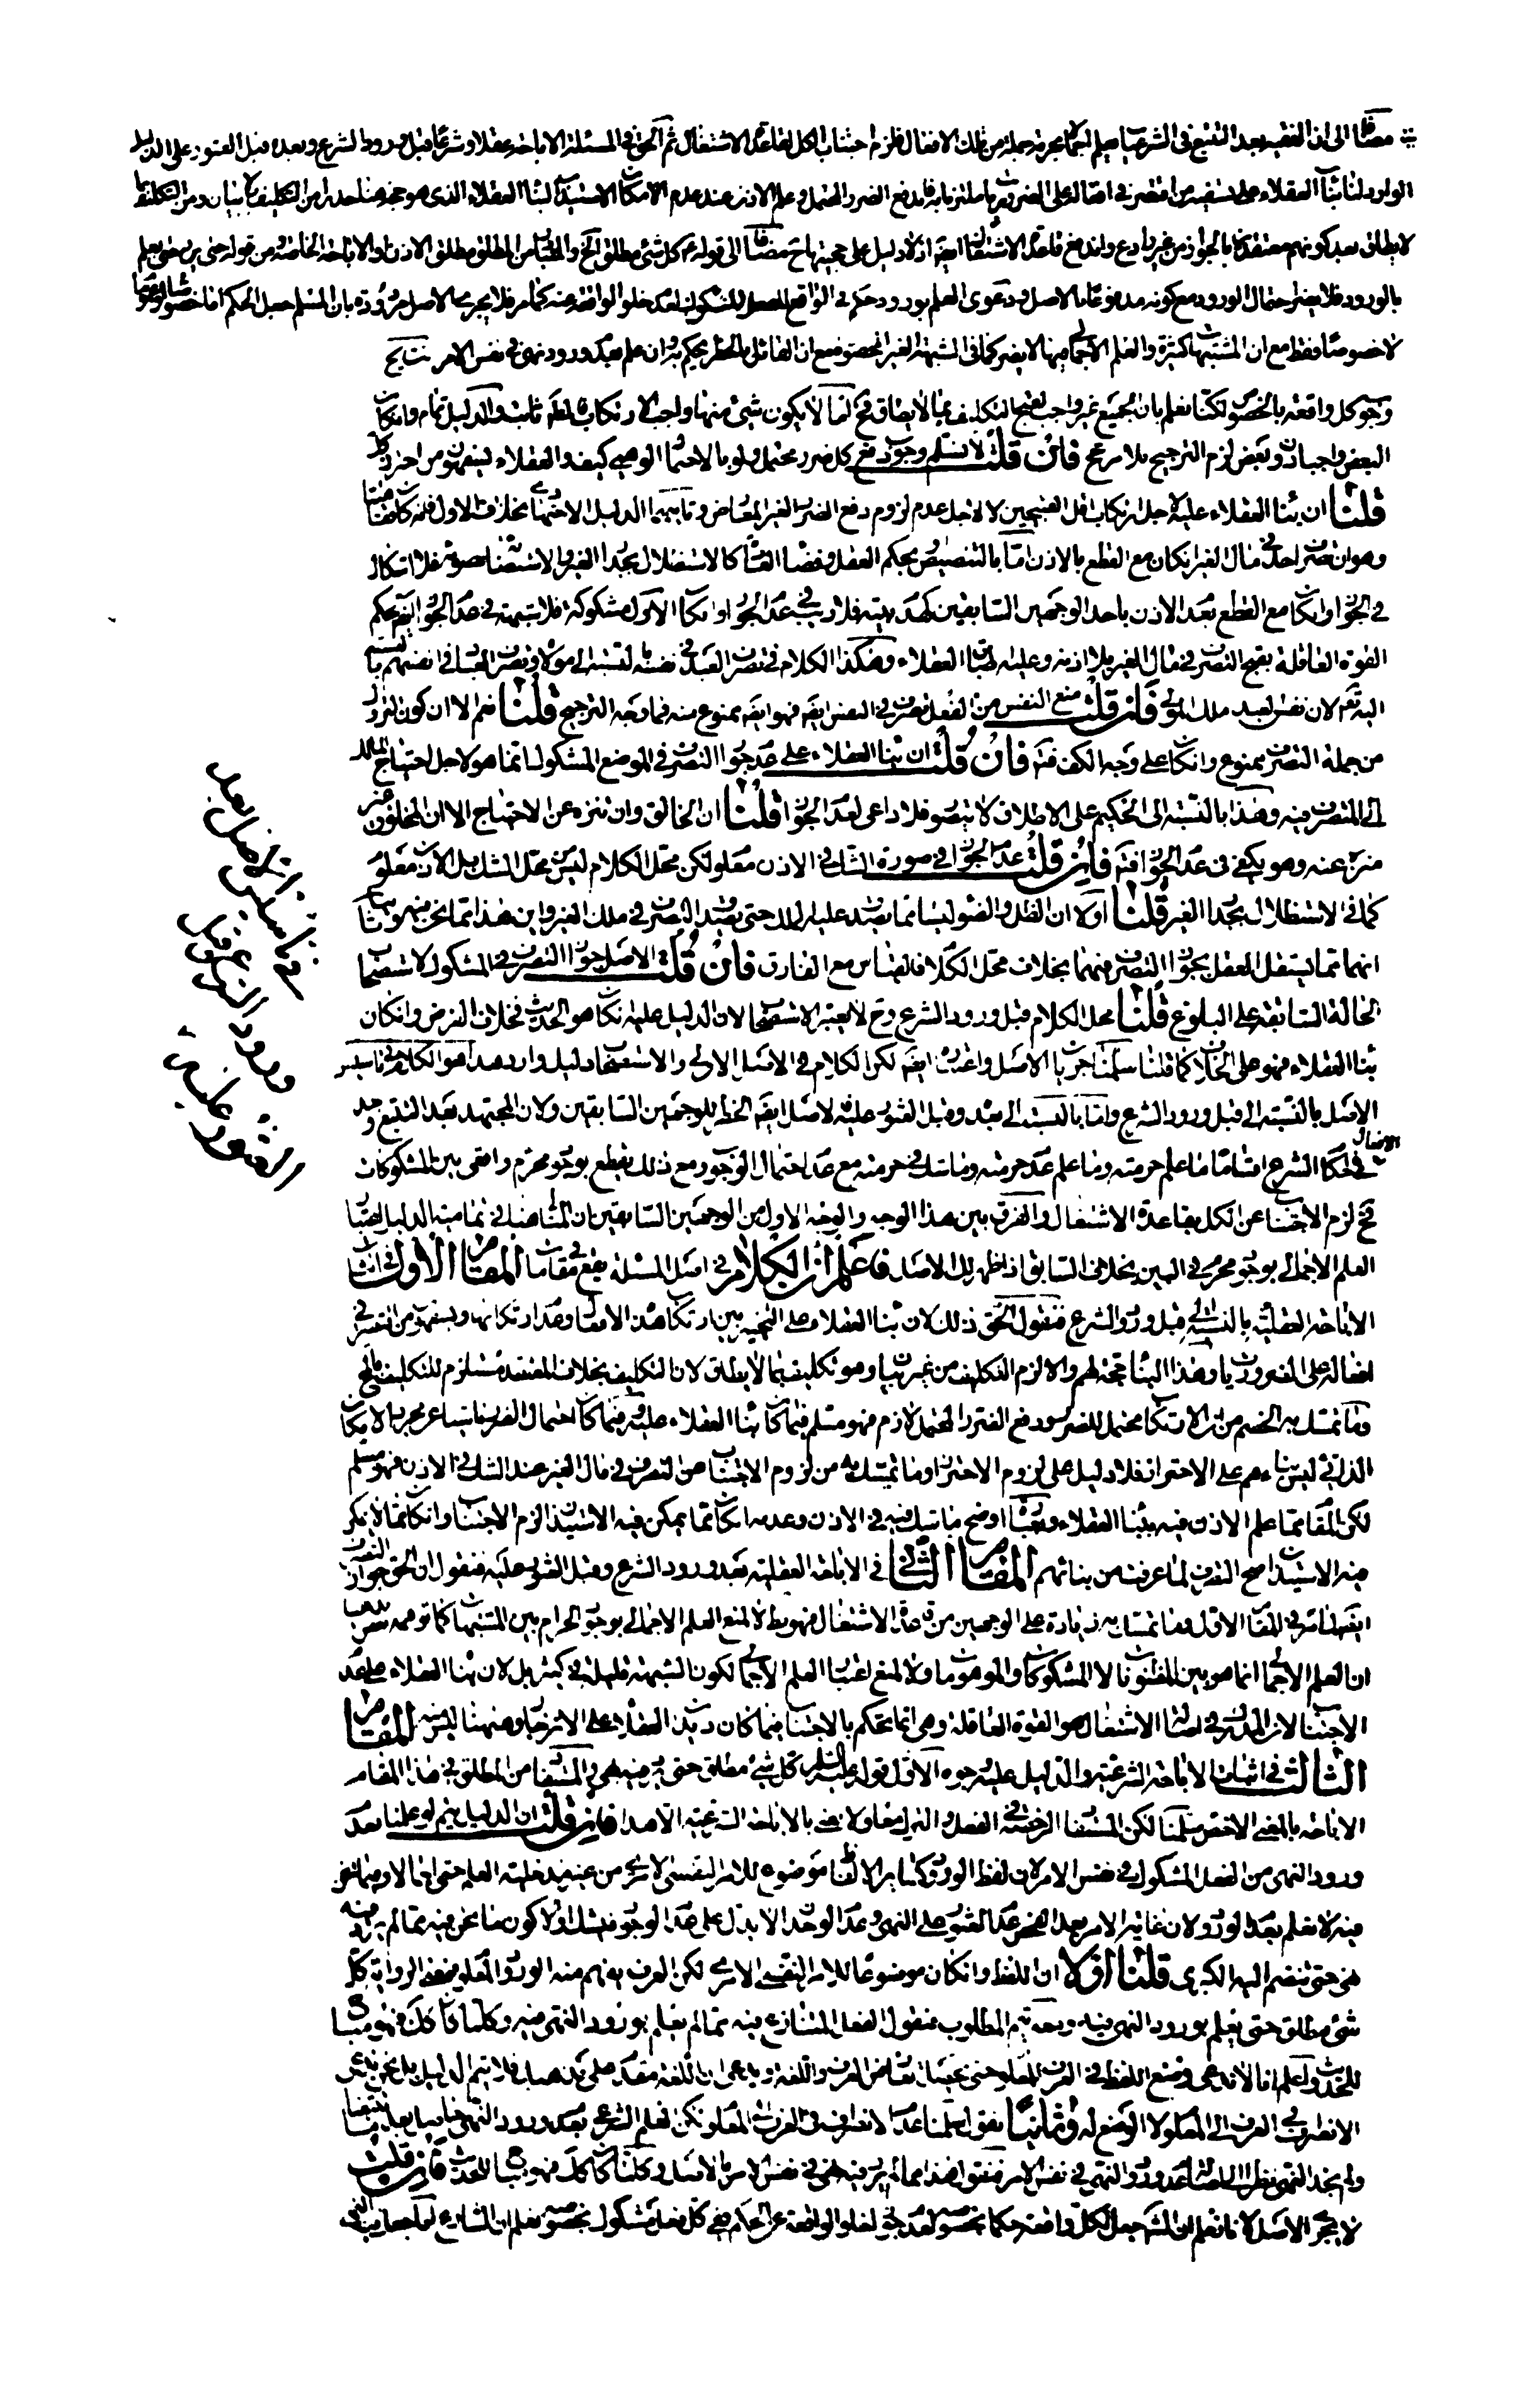 مضافا الى ان الفقيه بعد التتبع فى الشرعيات يعلم اجمالا بحرمة جملة من تلك الافعال فلزم اجتناب الكل لقاعدة الاشتغال ثم الحق فى المسئلة الاباحة عقلا وشرعا قبل ورود الشرع وبعده قبل العثور على الدليل
الوارد لنا بناء العقلاء على تسفيه من اقتصر فى افعاله على الضروريات دفع الضرر المحتمل وعلم الاذن عند عدم الامكان الاستيذان لبناء العقلاء الذى هو حجة من التكليف بلا بيان ومن التكليف بما
لا يطاق بعد كونهم معتقدين بالجواز من غير رادع واندفع قاعدة الاشتغال ايضا اذ لا دليل على حجيتها ح مضافا الى قوله ع كل شئ مطلق الخ من المطلق مطلق الاذن والاباحة الخاصة من قوله حتى يرد حتى يعلم
بالورود فلا يضر احتمال الورود مع كونه مدفوعا بالاصل ودعوى العلم بورود حكم فى الواقع للمشكوك لعدم خلو الواقعة عنه كما مر فلا يجرى الاصل مردودة بان المسلم جعل الحكم اما خصوصا او عموما
لا خصوصا فقط مع ان المشتبهات كثيرة والعلم الاجمالى فيها لا يضر كما فى الشبهة الغير المحصورة مع ان القائل بالحظر يحكم به وان علم بعدم ورود نهى فى نفس الامر
وجو كل واقعة بالخصوص لكنا نعلم بان الجميع غير واجب لقبح التكليف بما لا يطاق فح اما لا يكون شئ منها واجب الارتكاب فالمط ثابت والدليل تمام وامكان
البعض واجبا دون بعض لزم الترجيح بلا مرجح فان قلت لا نسلم وجوب دفع كل ضرر محتمل ولو بالاحتمال الوهمى كيف والعقلاء يسفهون من احترز
قلنا ان بناء العقلاء عليه لاجل ارتكاب اقل القبيحين لا لاجل عدم لزوم دفع الضرر الغير المعارض وثانيهما الدليل الاجتهادى بخلاف الاول
وهو ان تصرف احد فى مال الغير ان كان مع القطع بالاذن اما بالتنصيص بحكم العقل وقضاء العادة كالاستظلال بجدار الغير والاستضاءة بضوئه فلا اشكال
فى الجواز وان كان مع القطع بعدم الاذن باحد الوجهين السابقين فلا ريب فى عدم الجواز وان كان الاذن مشكوكا فلا شبهة فى عدم الجواز ايضا بحكم
القوة العاقلة بقبح التصرف فى مال الغير بلا اذنه وعليه طباق العقلاء وهكذا الكلام فى تصرف العبد فى نفسه بالنسبة الى مولاه وتصرف العباد فى انفسهم بالنسبة
اليه تعالى لان نفس العبد ملك المولى فان قلت منع النفس من الفعل تصرف فى النفس ايضا فهو ايضا ممنوع منه فما وجه الترجيح قلنا نعم الا ان كون الترك
من جملة التصرف ممنوع وان كان على وجه الكف فتم فان قلت ان بناء العقلاء على عدم جواز التصرف فى الموضع المشكوك انما هو لاجل احتياج المالك
الى المتصرف فيه وهذا بالنسبة الى الحكيم على الاطلاق لا يتصور فلا داعى لعدم الجواز قلنا ان الخالق وان تنزه عن الاحتياج الا ان المخلوق غير
منزه عنه وهو يكفى فى عدم الجواز فتم فان قلت عدم الجواز فى صورة الشك فى الاذن معلوم لكن محل الكلام ليس محل الشك بل الاذن معلوم
كما فى الاستظلال بجدار الغير قلنا اولا ان الظل والضوء ليسا مما يصدق عليه الملك حتى يصدق التصرف فى ملك الغير واين هذا مما نحن فيه وثانيا
انهما مما يستقل العقل بجواز التصرف فيهما بخلاف محل الكلام فالقياس مع الفارق فان قلت الاصل جواز التصرف فى المشكوك لاستصحاب
الحالة السابقة على البلوغ قلنا محل الكلام قبل ورود الشرع وح لا يعتبر الاستصحاب لان الدليل عليه ان كان هو الحديث فخلاف الفرض وان كان
بناء العقلاء فهو على الخلاف كما قلنا سلمنا جريان الاصل واعتباره ايضا لكن الكلام فى الاصل الاولى والاستصحاب دليل وارد هذا هو الكلام فى تاسيس
الاصل بالنسبة الى قبل ورود الشرع واما بالنسبة الى بعده وقبل العثور عليه فالاصل ايضا الحظر للوجهين السابقين ولان المجتهد بعد التتبع وجد
فى احكام الشرع اقساما ما علم حرمته وما علم عدم حرمته وما شك فى حرمته مع عدم احتمال الوجوب ومع ذلك يقطع بوجود محرم واقعى بين المشكوكات
فح لزم الاجتناب عن الكل بقاعدة الاشتغال والفرق بين هذا الوجه والوجه الاول من الوجهين السابقين ان المناط هنا فى تمامية الدليل اعتبار
العلم الاجمالى بوجود محرم فى البين بخلاف السابق اذا ظهر لك الاصل فاعلم ان الكلام فى اصل المسئلة يقع فى مقامات المقام الاول فى اثبات
الاباحة العقلية بالنسبة الى قبل ورود الشرع فنقول الحق ذلك لان بناء العقلاء على التخيير بين ارتكاب هذه الافعال وعدم ارتكابها ويسفهون من اقتصر فى
افعاله على الضروريات وهذا البناء حجة لهم والا لزم التكليف من غير بيان وهو تكليف بما لا يطاق لان التكليف بخلاف المعتقد مستلزم للتكليف بالمحال
وما تمسك به الخصم من ان الارتكاب محتمل للضرر ودفع الضرر المحتمل لازم فهو مسلم فيما كان بناء العقلاء عليه وفيما كان احتمال الضرر ناشئا عن مجرد الامكان
الذاتى ليس بناءهم على الاحتراز فلا دليل على لزوم الاحتراز وما تمسك به من لزوم الاجتناب عن التصرف فى مال الغير عند الشك فى الاذن فهو مسلم
لكن المقام مما علم الاذن فيه ببناء العقلاء وبعبارة اوضح ما شك فيه فى الاذن وعدمه ان كان مما يمكن فيه الاستيذان لزم الاجتناب وان كان مما لا يمكن
فيه الاستيذان صح التصرف لما عرفت من بنائهم المقام الثانى فى الاباحة العقلية بعد ورود الشرع وقبل العثور عليه فنقول ان الحق جواز التصرف
ايضا لما مر فى المقام الاول وما تمسك به زيادة على الوجهين من قاعدة الاشتغال فهو بط لا لمنع العلم الاجمالى بوجود الحرام بين المشتبهات كما توهمه بعض بدعوى
ان العلم الاجمالى انما هو بين المظنونات لا المشكوكات والموهومات ولا لمنع اعتبار العلم الاجمالى لكون الشبهة قليل فى كثير بل لان بناء العقلاء على عدم
الاجتناب لان المدرك فى اصالة الاشتغال هو القوة العاقلة وهى انما تحكم بالاجتناب فيما كان ديدن العقلاء على الاحتراز وهيهنا ليس منه المقام
الثالث فى اثبات الاباحة الشرعية والدليل عليه وجوه الاول قوله عليه السلام كل شئ مطلق حتى يرد فيه نهى والمستفاد من المطلق فى هذا المقام
الاباحة بالمعنى الاخص سلمنا لكن المستفاد الرخصة فى الفعل والترك معا ولا نعنى بالاباحة الشرعية الا هذا فان قلت ان الدليل يتم لو علمنا بعدم
ورود النهى من الفعل المشكوك فى نفس الامر لان لفظ الورود كساير الالفاظ موضوع للامر النفس الامرى من غير مدخلية العلم حتى اجمالا وفيما نحن
فيه لا نعلم بعدم الورود لان غاية الامر بعد الفحص عدم العثور على النهى وعدم الوجدان لا يدل على عدم الوجود فنشك اولا كون ما نحن فيه مما لم يرد فيه
نهى حتى تنضم اليه الكبرى قلنا اولا ان اللفظ وان كان موضوعا للامر النفس الامرى لكن العرف يفهم منه الورود المعلوم فمعنى الرواية كل
شئ مطلق حتى يعلم بورود النهى فيه ومعه يتم المطلوب فنقول الفعل المتنازع فيه مما لم يعلم بورود النهى فيه وكلما كان كذلك فهو مباح
للحديث واعلم انا لا ندعى وضع اللفظ فى العرف للمعلوم حتى
الانصراف فى العرف الى المعلوم لا الوضع له وثانيا نقول سلمنا عدم الانصراف فى العرف الى المعلوم لكن لعلم الشرعى بعدم ورود النهى
ولم نجد النهى نظرا الى اصالة عدم ورود النهى فى نفس الامر فنقول هذا مما لم يرد فيه نهى فى نفس الامر بالاصل وكلما كان كذلك فهو مباح للحديث فان قلت
لا يجرى الاصل لانا نعلم ان الشارع جعل لكل واقعة حكما بخصوصه لعدم خلو الواقعة عن الحكم ففى كل فعل مشكوك بخصوصه نعلم ان الشارع
الافعال
فى تاسيس الاصل قبل
ورود الشرع وقبل
العثور عليه